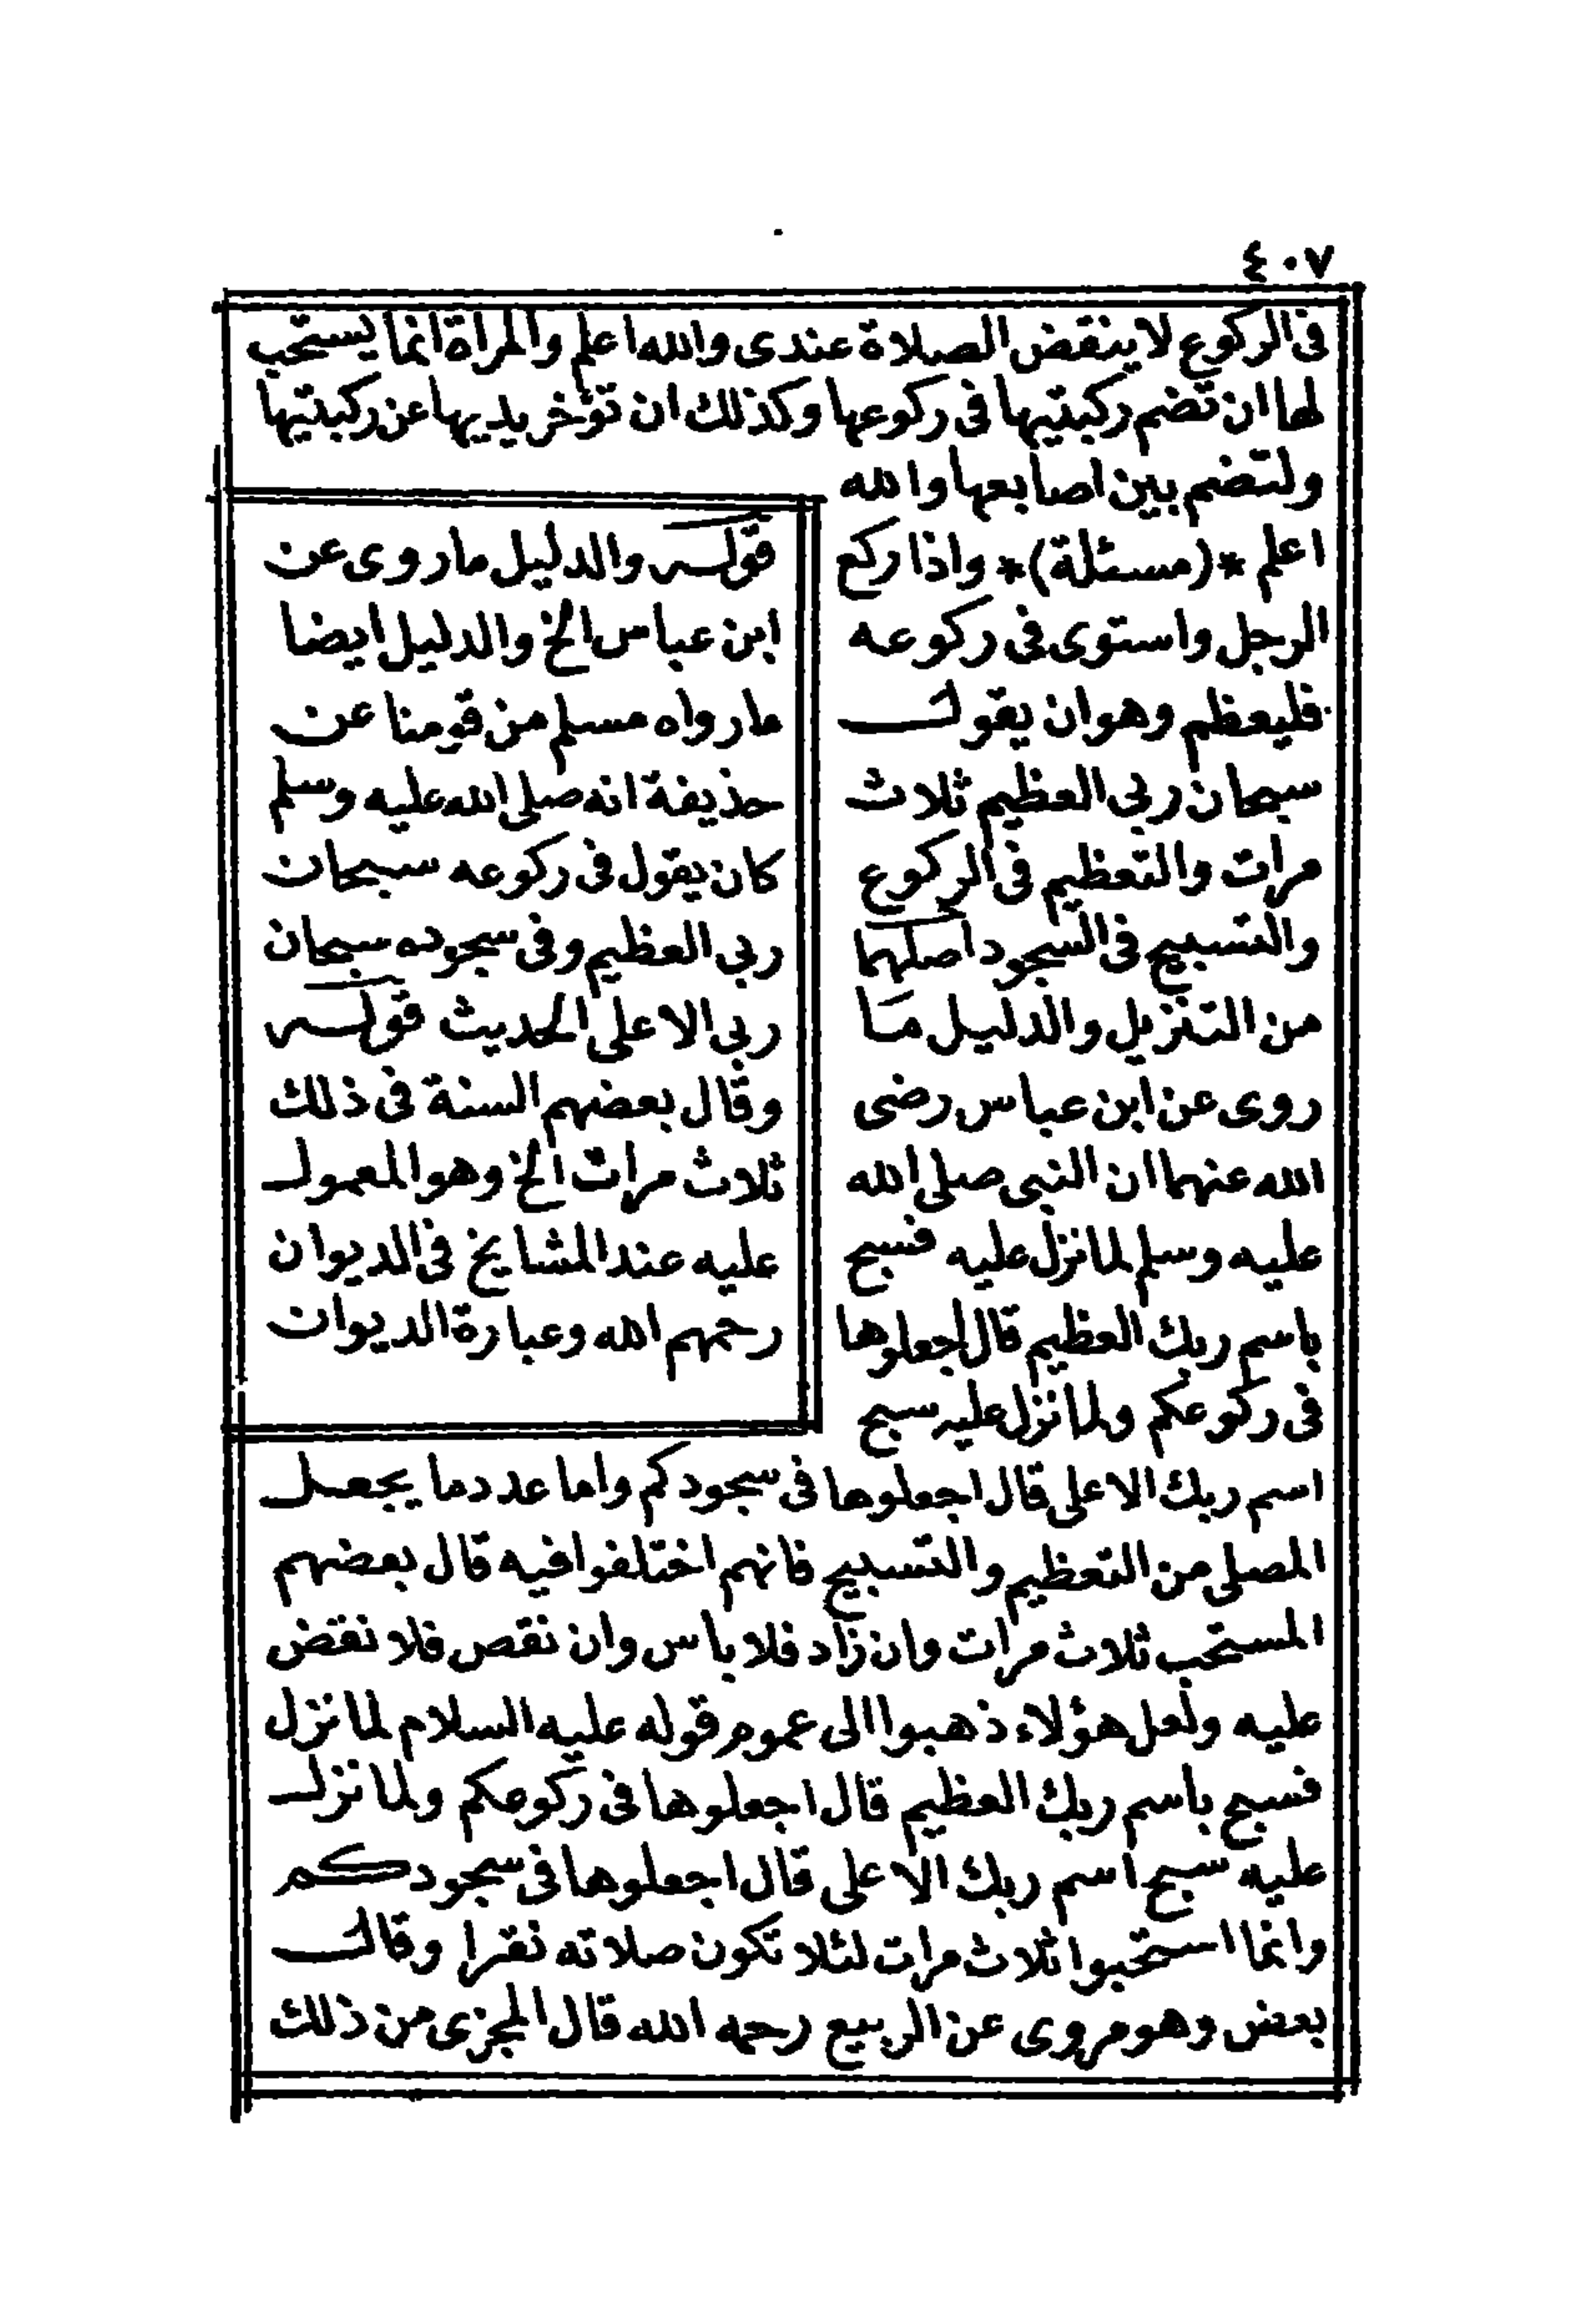 ٤٠٧
فى الركوع لا ينقض الصلاة عندى والله اعلم والمراة انما يستحب
لها ان تضم ركبتيها فى ركوعها وكذلك ان تؤخر يديها عن ركبتيها
ولتضم بين اصابعها والله
اعلم *(مسئلة)* واذا ركع
الرجل واستوى فى ركوعه
فليعظم وهو ان يقول
سبحان ربى العظيم ثلاث
مرات والتعظيم فى الركوع
والتسبيح فى السجود اصلهما
من التنزيل والدليل ما
روى عن ابن عباس رضى
الله عنهما ان النبى صلى الله
عليه وسلم لما نزل عليه فسبح
باسم ربك العظيم قال اجعلوها
فى ركوعكم ولما نزل عليه سبح
اسم ربك الاعلى قال اجعلوها فى سجودكم واما عدد ما يجعل
المصلى من التعظيم والتسبيح فانهم اختلفوا فيه قال بعضهم
المستحب ثلاث مرات وان زاد فلا باس وان نقص فلا نقض
عليه ولعل هؤلاء ذهبوا الى عموم قوله عليه السلام لما نزل
فسبح باسم ربك العظيم قال اجعلوها فى ركوعكم ولما نزل
عليه سبح اسم ربك الاعلى قال اجعلوها فى سجودكم
وانما استحبوا ثلاث مرات لئلا تكون صلاته نقرا وقال
بعض وهو مروى عن الربيع رحمه الله قال المجزى من ذلك
قوله والدليل ما روى عن
ابن عباس الخ والدليل ايضا
ما رواه مسلم من قومنا عن
حذيفة انه صلى الله عليه وسلم
كان يقول فى ركوعه سبحان
ربى العظيم وفى سجوده سبحان
ربى الاعلى الحديث قوله
وقال بعضهم السنة فى ذلك
ثلاث مرات الخ وهو المعمول
عليه عند المشايخ فى الديوان
رحمهم الله وعبارة الديوان